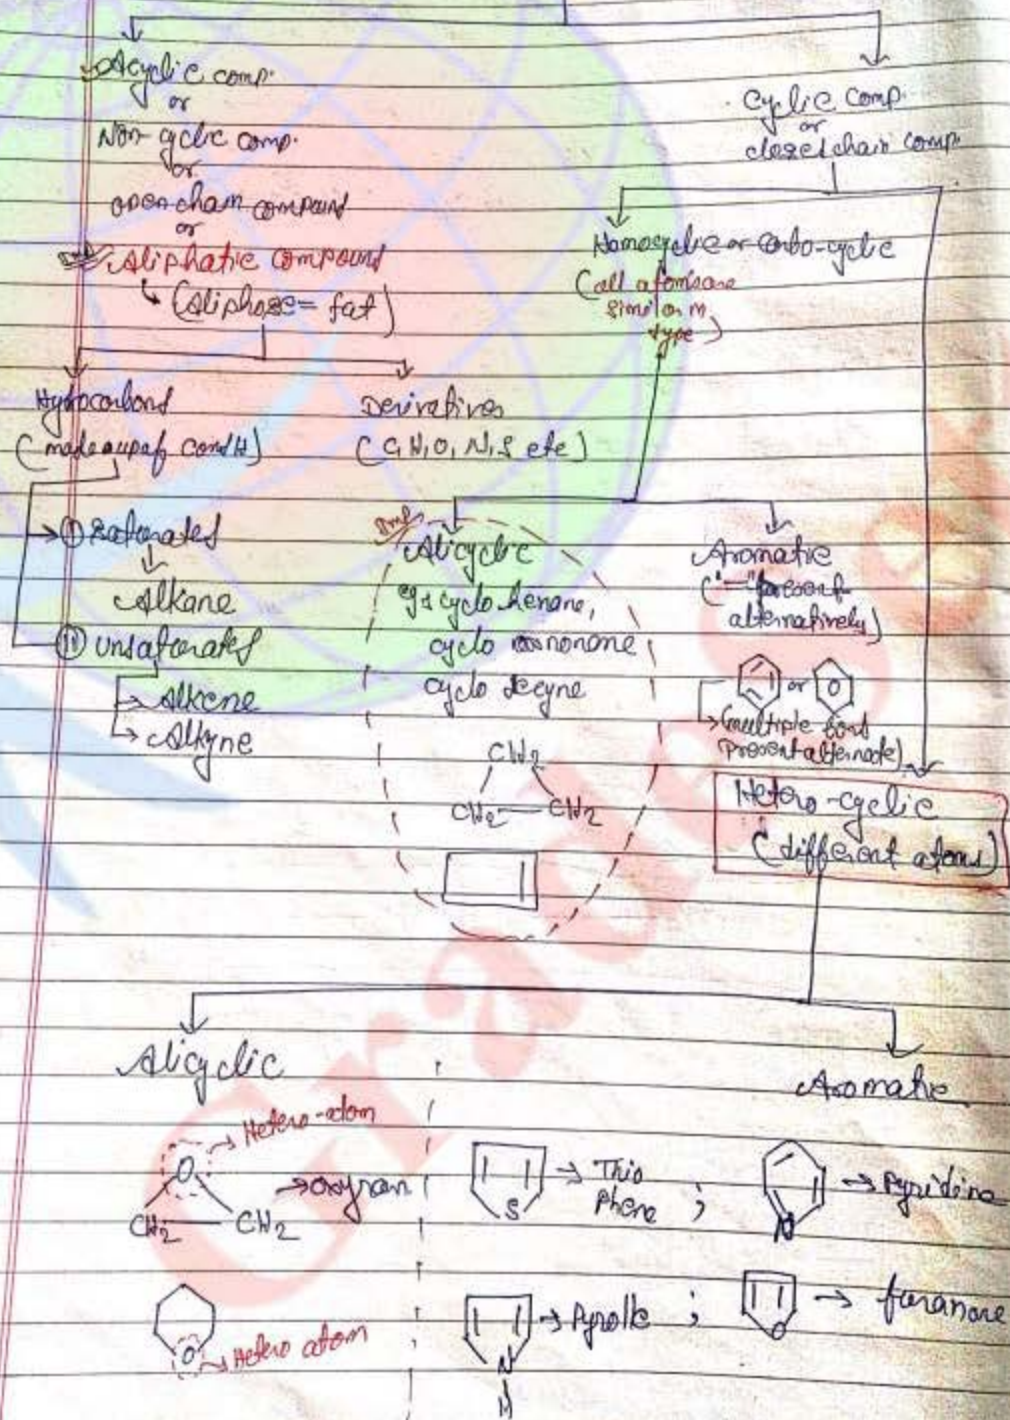 Acyclic comp.
or
Non-cyclic comp.
or
open chain compound
or
Aliphatic compound
(Aliphose = fat)
Hydrocarbons
(made up of C and H)
① Saturated
Alkane
② unsaturated
Alkene
Alkyne
Derivatives
(C, H, O, N, S etc)
Cyclic comp.
or
closed chain comp.
Homocyclic or Carbo-cyclic
(all atoms are
similar in
type)
Imp
Alicyclic
eg:
cyclo
cyclo nonane
cyclo decyne
CH2
CH2 CH2
Aromatic
("=" present
alternatively)
or
(multiple bond
present alternate)
Hetero-cyclic
(different atoms)
Alicyclic
Hetero-atom
O
oxyran
CH2 CH2
O
Hetero atom
Aromatic
S
Thio
phene
;
N
Pyridine
N
H
Pyrolle
;
O
furanone
Gradese